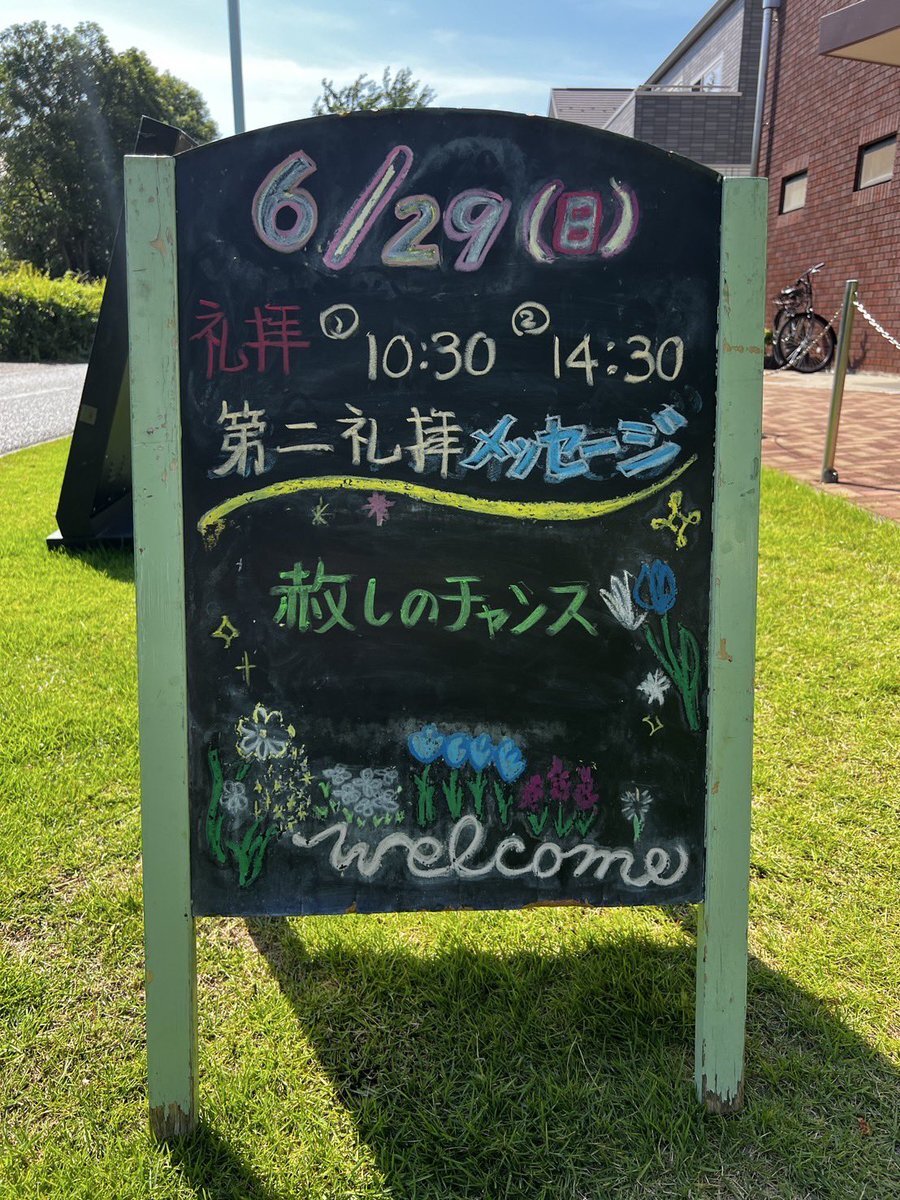 6/29(日)
礼拝 ① 10:30 ② 14:30
第二礼拝メッセージ
赦しのチャンス
welcome